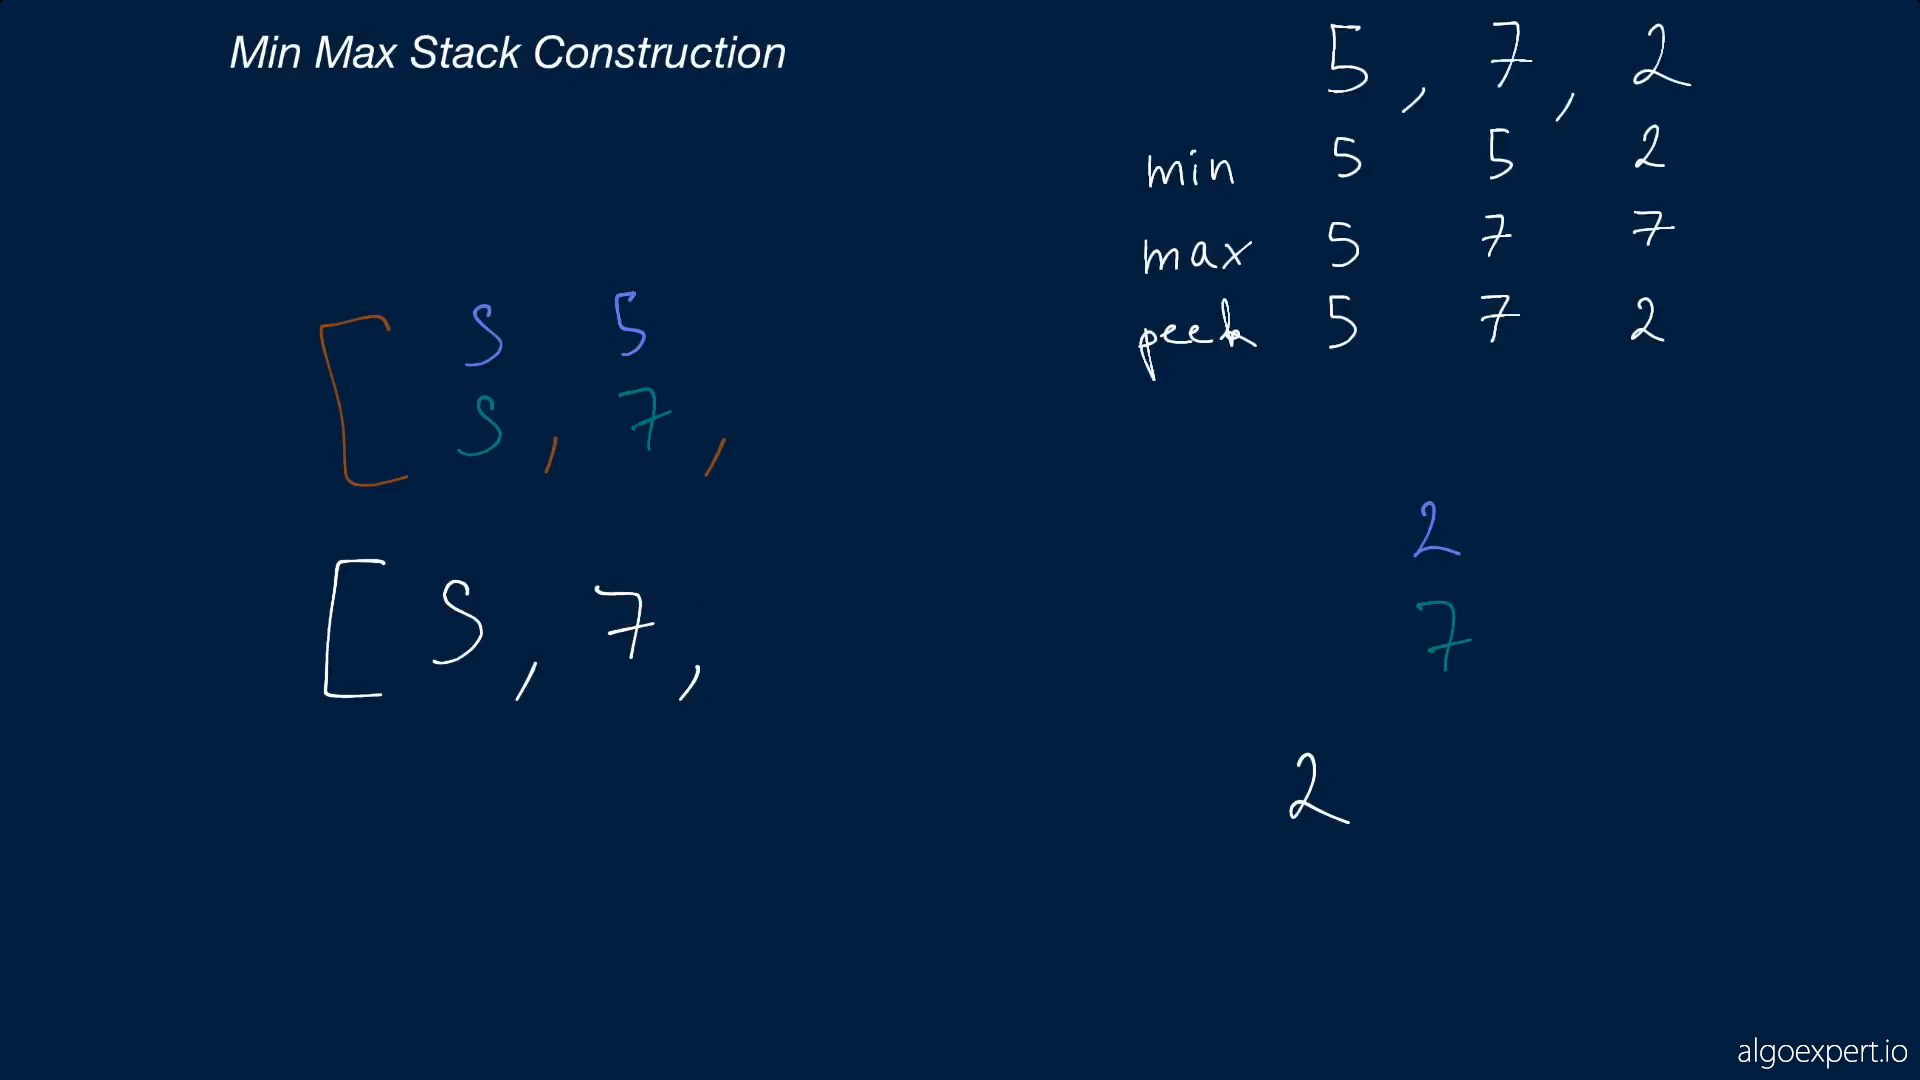 Min Max Stack Construction
5, 7, 2
min 5 5 2
max 5 7 7
peek 5 7 2
[ 5 5
5, 7,
2
7
[ 5, 7,
2
algoexpert.io